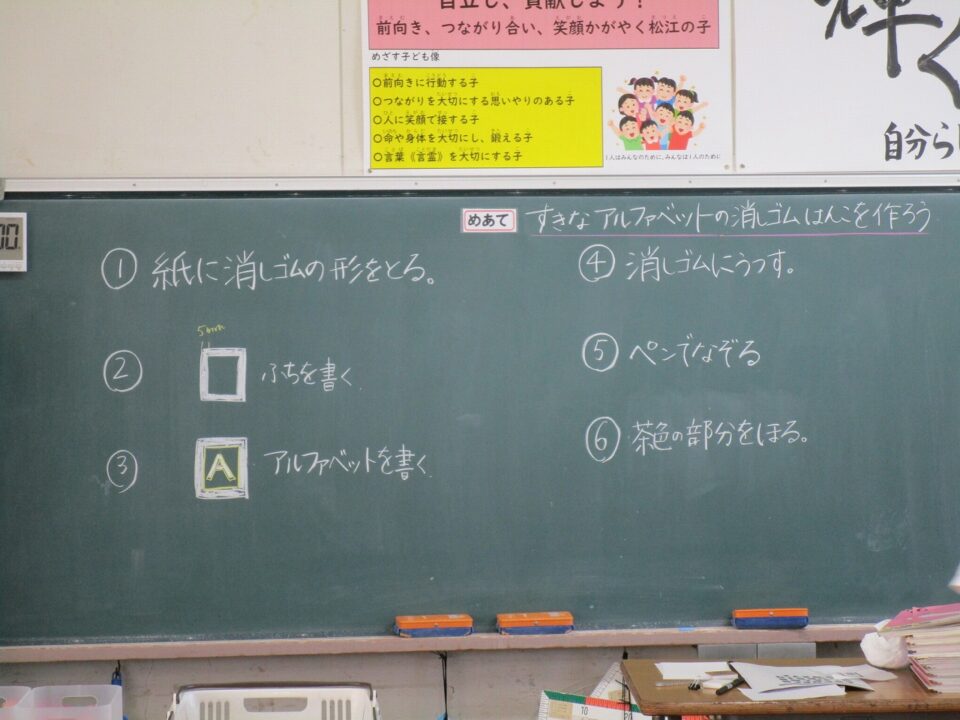 自立し、貢献しよう!
前向き、つながり合い、笑顔かがやく松江の子
めざす子ども像
○前向きに行動する子
○つながりを大切にする思いやりのある子
○人に笑顔で接する子
○命や身体を大切にし、鍛える子
○言葉《言霊》を大切にする子
1人はみんなのために、みんなは1人のために
輝く
自分ら
めあて すきなアルファベットの消しゴムはんこを作ろう
① 紙に消しゴムの形をとる。
② 5mm ふちを書く
③ A アルファベットを書く
④ 消しゴムにうつす。
⑤ ペンでなぞる
⑥ 茶色の部分をほる。
10